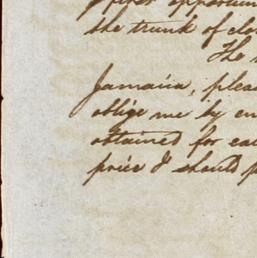 first opportun
the trunk of clo
The
Jamaica, plea
oblige me by en
obtained for ea
price I should p